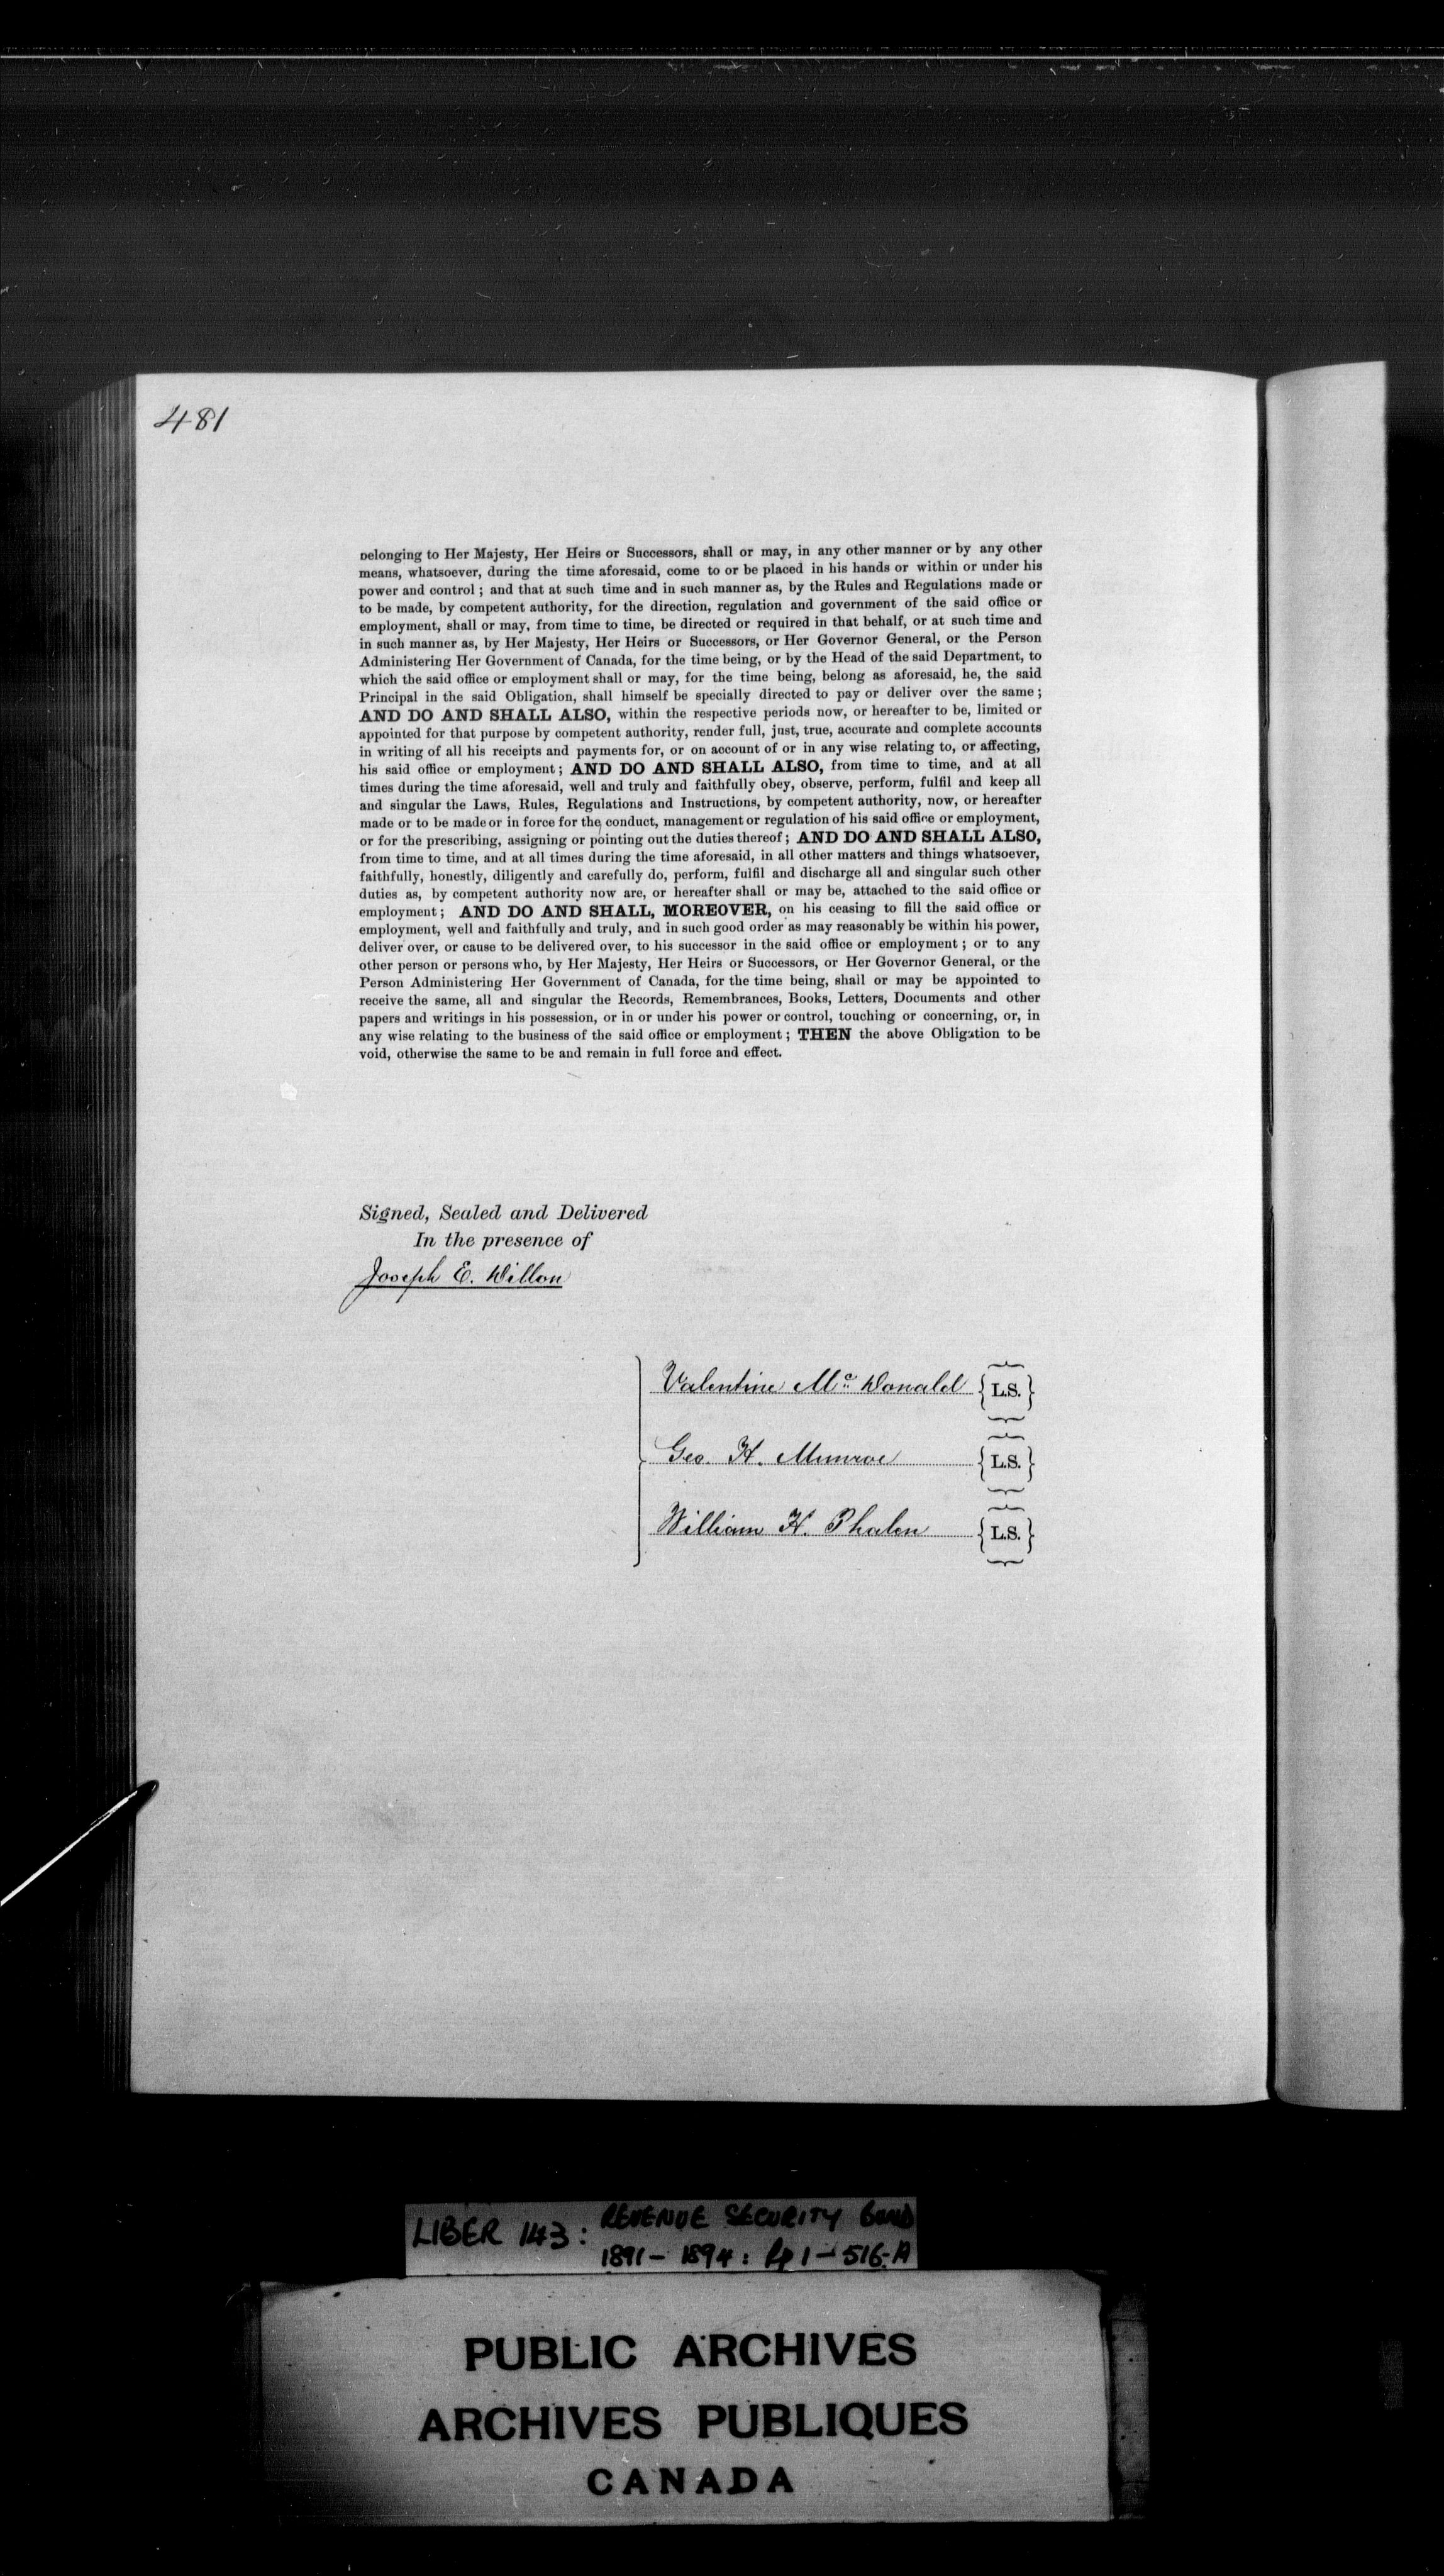 481
belonging to Her Majesty, Her Heirs or Successors, shall or may, in any other manner or by any other
means, whatsoever, during the time aforesaid, come to or be placed in his hands or within or under his
power and control; and that at such time and in such manner as, by the Rules and Regulations made or
to be made, by competent authority, for the direction, regulation and government of the said office or
employment, shall or may, from time to time, be directed or required in that behalf, or at such time and
in such manner as, by Her Majesty, Her Heirs or Successors, or Her Governor General, or the Person
Administering Her Government of Canada, for the time being, or by the Head of the said Department, to
which the said office or employment shall or may, for the time being, belong as aforesaid, he, the said
Principal in the said Obligation, shall himself be specially directed to pay or deliver over the same;
AND DO AND SHALL ALSO, within the respective periods now, or hereafter to be, limited or
appointed for that purpose by competent authority, render full, just, true, accurate and complete accounts
in writing of all his receipts and payments for, or on account of or in any wise relating to, or affecting,
his said office or employment; AND DO AND SHALL ALSO, from time to time, and at all
times during the time aforesaid, well and truly and faithfully obey, observe, perform, fulfil and keep all
and singular the Laws, Rules, Regulations and Instructions, by competent authority, now, or hereafter
made or to be made or in force for the conduct, management or regulation of his said office or employment,
or for the prescribing, assigning or pointing out the duties thereof; AND DO AND SHALL ALSO,
from time to time, and at all times during the time aforesaid, in all other matters and things whatsoever,
faithfully, honestly, diligently and carefully do, perform, fulfil and discharge all and singular such other
duties as, by competent authority now are, or hereafter shall or may be, attached to the said office or
employment; AND DO AND SHALL, MOREOVER, on his ceasing to fill the said office or
employment, well and faithfully and truly, and in such good order as may reasonably be within his power,
deliver over, or cause to be delivered over, to his successor in the said office or employment; or to any
other person or persons who, by Her Majesty, Her Heirs or Successors, or Her Governor General, or the
Person Administering Her Government of Canada, for the time being, shall or may be appointed to
receive the same, all and singular the Records, Remembrances, Books, Letters, Documents and other
papers and writings in his possession, or in or under his power or control, touching or concerning, or, in
any wise relating to the business of the said office or employment; THEN the above Obligation to be
void, otherwise the same to be and remain in full force and effect.
Signed, Sealed and Delivered
In the presence of
Joseph E. Dillon
Valentine Mc Donald {L.S.}
Geo. H. Munroe {L.S.}
William H. Phalen {L.S.}
LIBER 143: REVENUE SECURITY BOND
1891-1894: Pp 1-516-A
PUBLIC ARCHIVES
ARCHIVES PUBLIQUES
CANADA